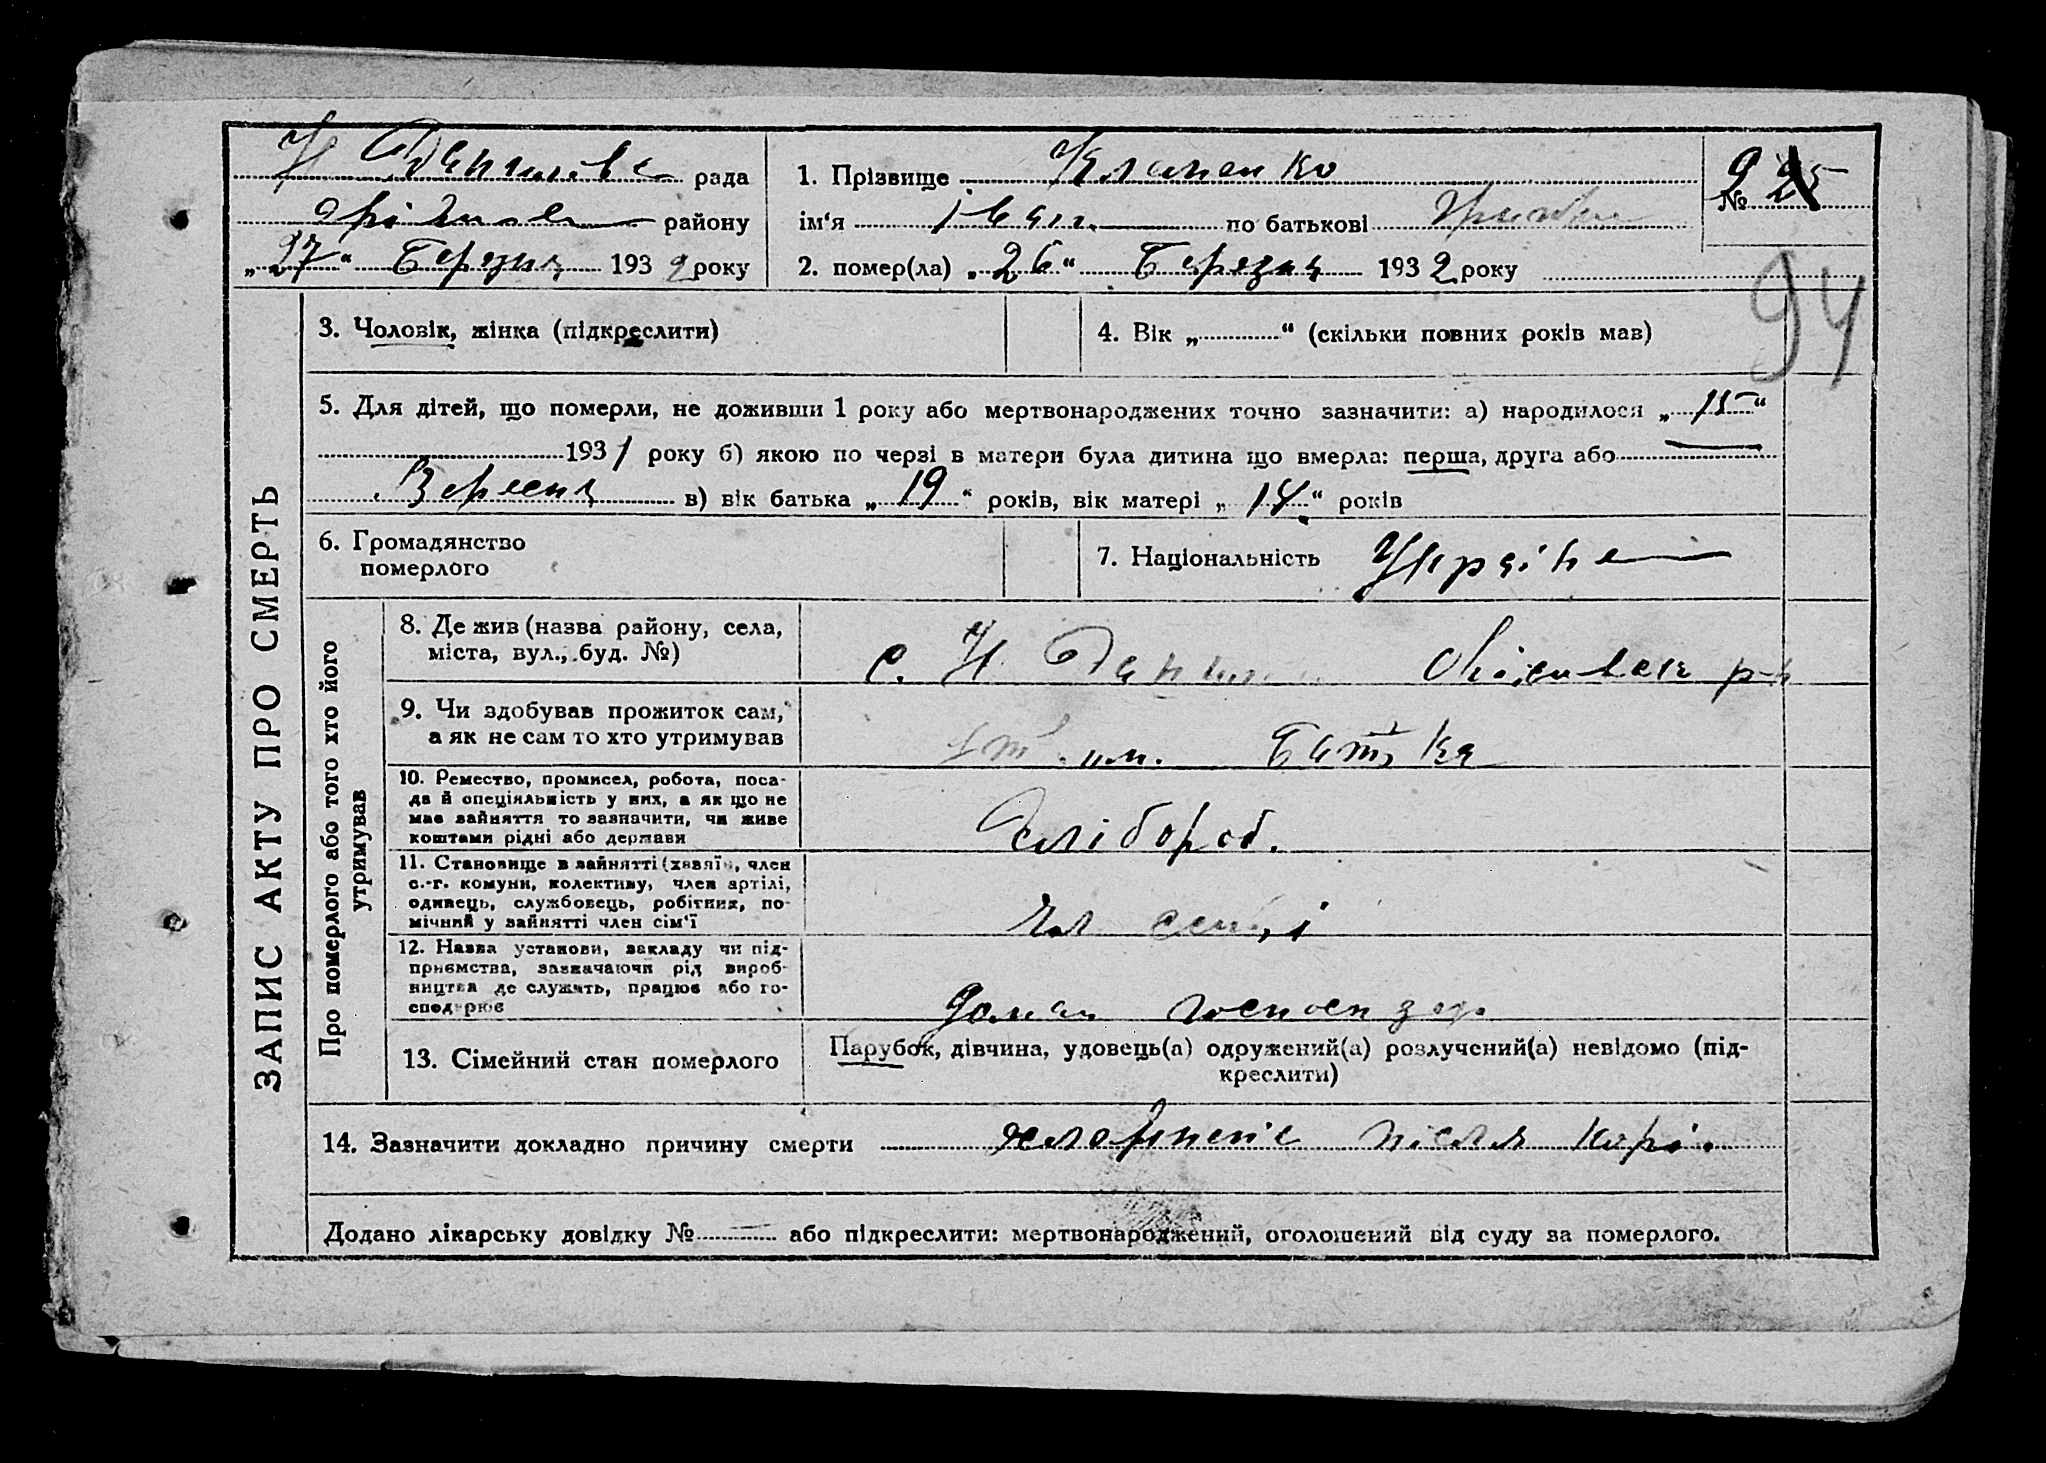 рада
району
„27“ Березня 1932 року
1. Прізвище Клименко
ім'я Іван по батькові
2. помер(ла) „26“ Березня 1932 року
№
94
ЗАПИС АКТУ ПРО СМЕРТЬ
3. Чоловік, жінка (підкреслити)
4. Вік „ “ (скільки повних років мав)
5. Для дітей, що померли, не доживши 1 року або мертвонароджених точно зазначити: а) народилося „15“
1931 року б) якою по черзі в матери була дитина що вмерла: перша, друга або —
Вересня в) вік батька „19“ років, вік матері „ “ років
6. Громадянство
померлого
7. Національність Україне
Про померлого або того хто його
утримував
8. Де жив (назва району, села,
міста, вул., буд. №)
с. Н
9. Чи здобував прожиток сам,
а як не сам то хто утримував
Батька
10. Ремество, промисел, робота, поса-
да й спеціяльність у них, а як що не
має зайняття то зазначити, чи живе
коштами рідні або держави
Хлібороб.
11. Становище в зайнятті (хазяїн, член
с.-г. комуни, колективу, член артілі,
одинець, службовець, робітник, по-
мічний у зайнятті член сім'ї
чл семї
12. Назва установи, закладу чи під-
приємства, зазначаючи рід вироб-
ництва де служить, працює або го-
сподарює
13. Сімейний стан померлого
Парубок, дівчина, удовець(а) одружений(а) розлучений(а) невідомо (під-
креслити)
14. Зазначити докладно причину смерти після корі.
Додано лікарську довідку № — або підкреслити: мертвонароджений, оголошений від суду за померлого.